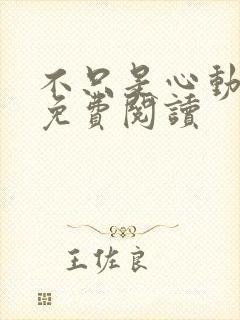 不只是心動
免費閱讀
王佐良